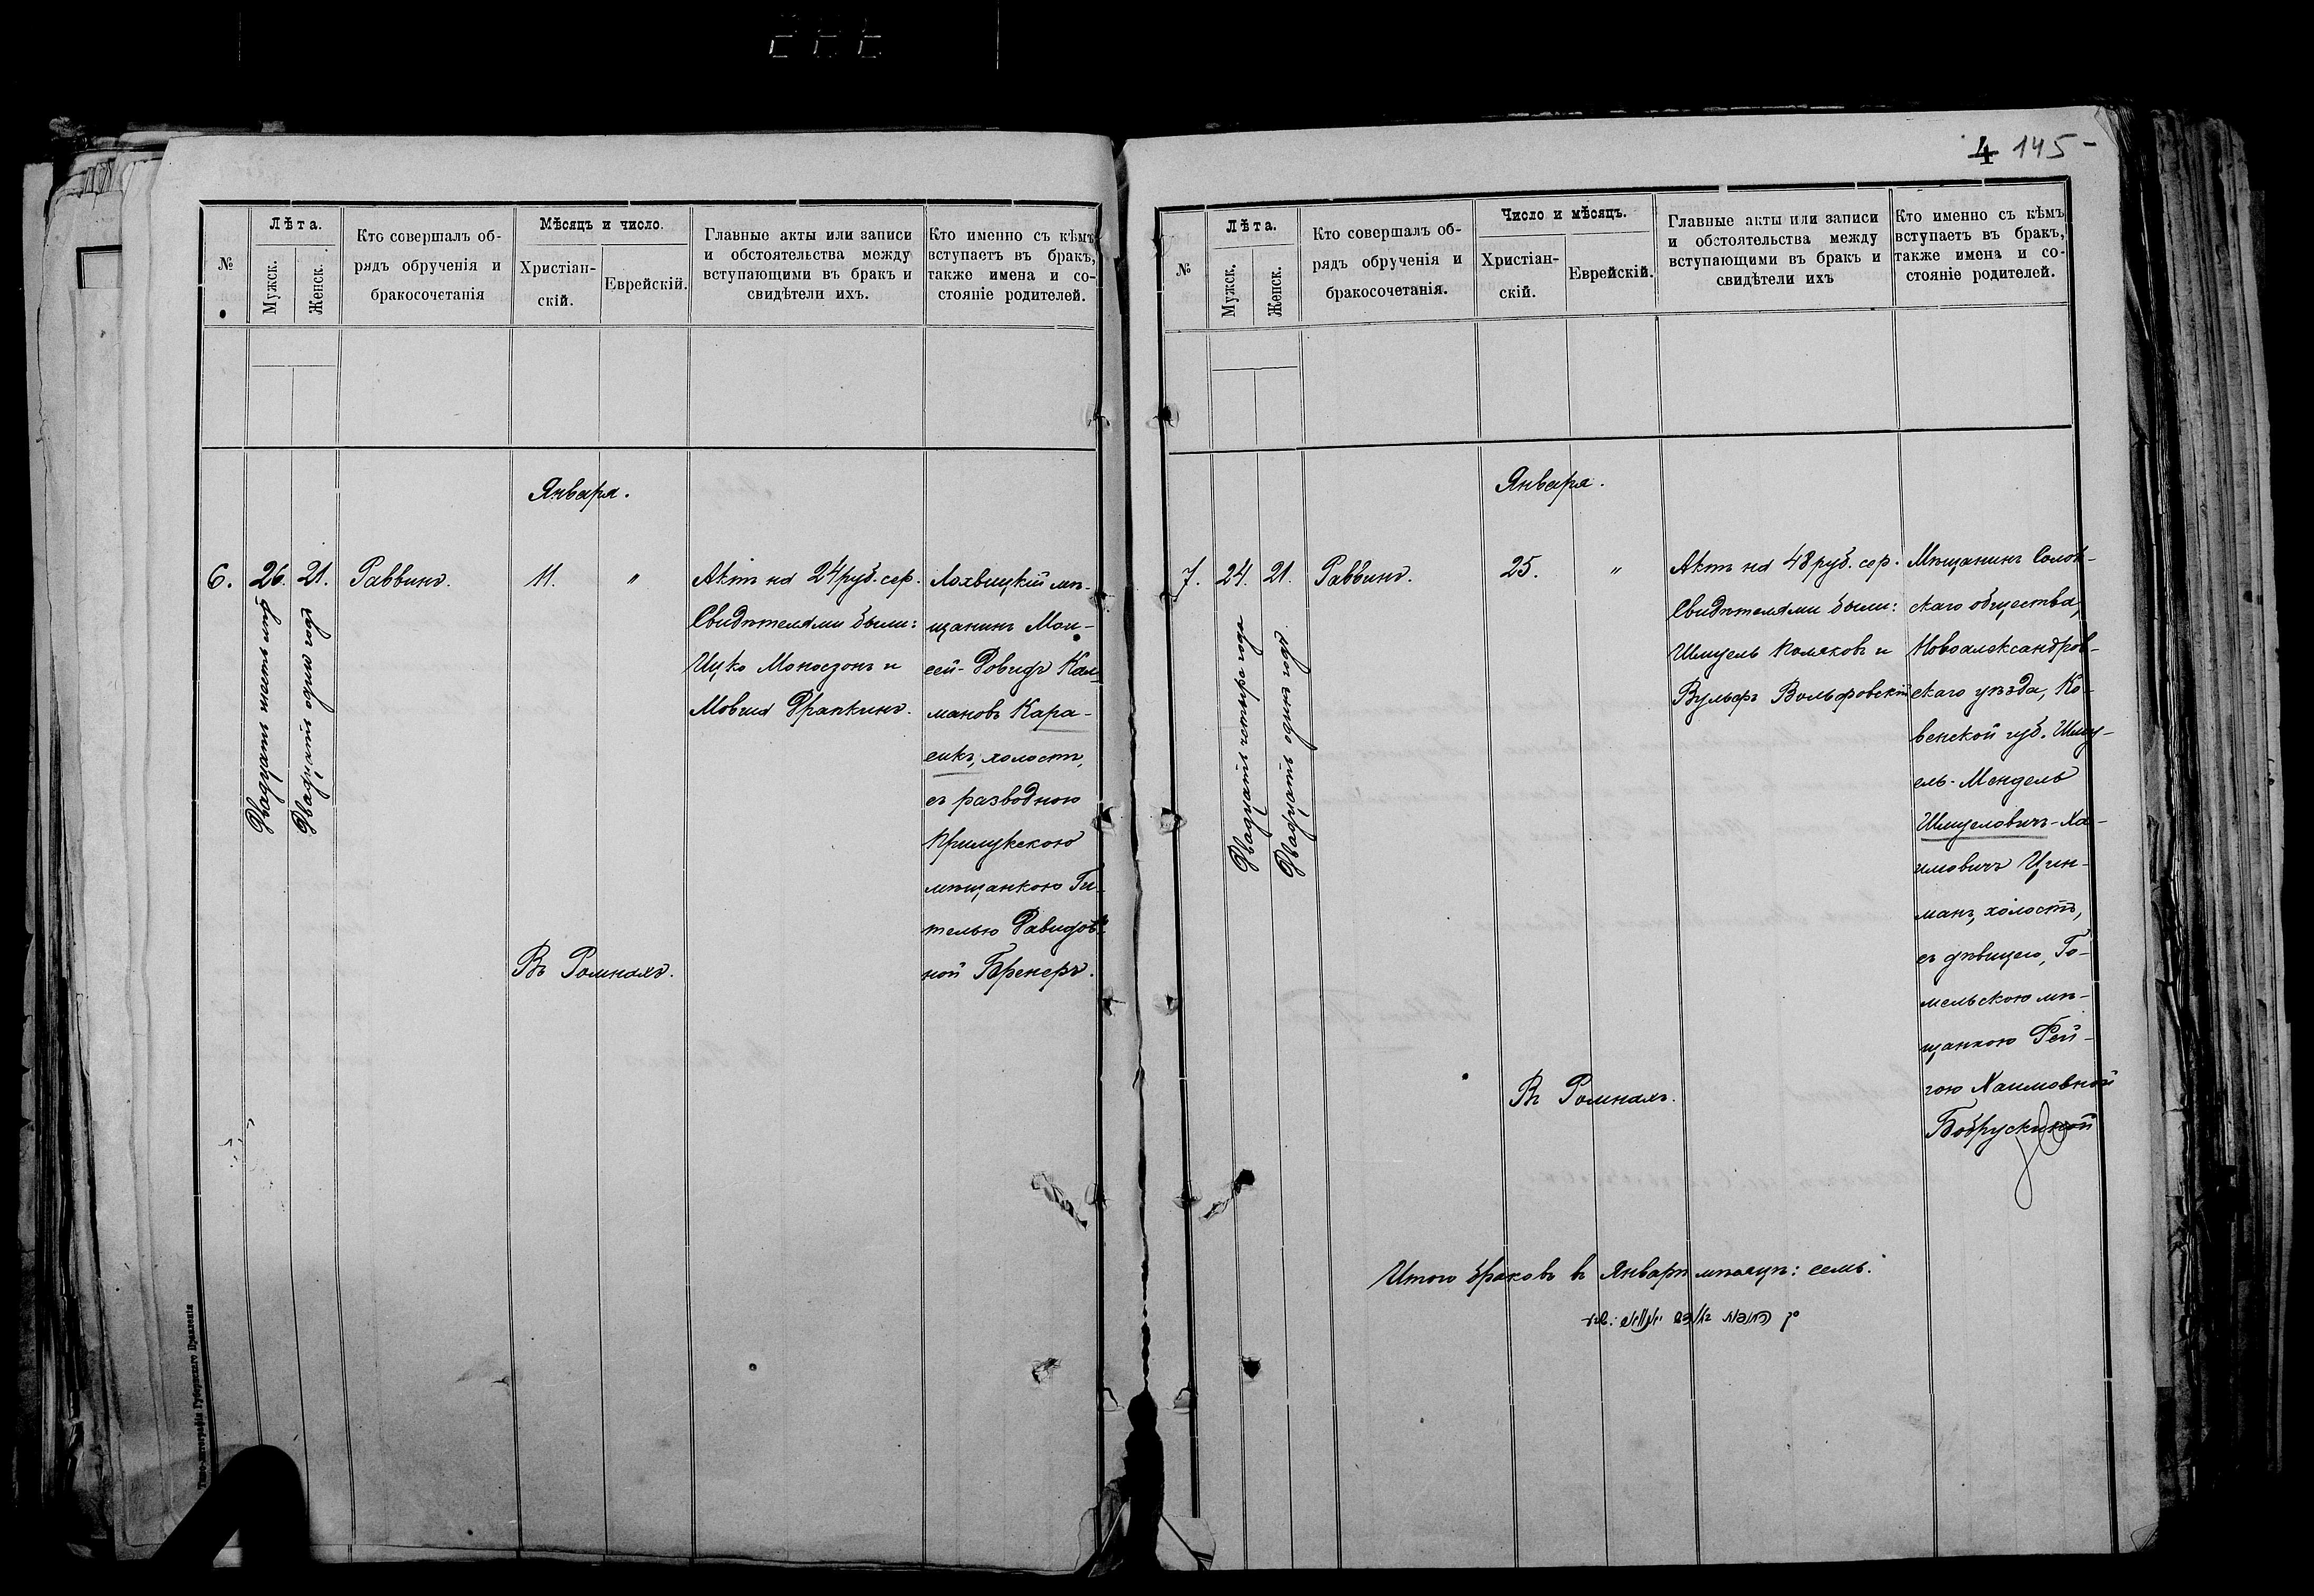 4 145-
№
Лѣта.
Мужск.
Женск.
Кто совершалъ об-
рядъ обрученія и
бракосочетанія
Мѣсяцъ и число.
Христіан-
скій.
Еврейскій.
Главные акты или записи
и обстоятельства между
вступающими въ бракъ и
свидѣтели ихъ.
Кто именно съ кѣмъ
вступаетъ въ бракъ,
также имена и со-
стояніе родителей.
Января.
6.
26.
Двадцать шесть лѣтъ
21.
Двадцать одинъ годъ
Раввинъ.
11.
"
Актъ на 24 руб. сер.
Свидѣтелями были:
Ицко Моносзонъ и
Мовша Драпкинъ.
Лохвицкій мѣ-
щанинъ Мои-
сей-Довидъ Кал-
мановъ Кара-
сикъ, холостъ,
съ разводною
Прилукскою
мѣщанкою Ги-
телью Давидов-
ной Бренеръ.
Въ Ромнахъ.
Типо-литографія Губернскаго Правленія
№
Лѣта.
Мужск.
Женск.
Кто совершалъ об-
рядъ обрученія и
бракосочетанія.
Число и мѣсяцъ.
Христіан-
скій.
Еврейскій.
Главные акты или записи
и обстоятельства между
вступающими въ бракъ и
свидѣтели ихъ
Кто именно съ кѣмъ
вступаетъ въ бракъ,
также имена и со-
стояніе родителей.
Января.
7.
24.
Двадцать четыре года
21.
Двадцать одинъ годъ
Раввинъ.
25.
"
Актъ на 48 руб. сер.
Свидѣтелями были:
Шмуель Поляковъ и
Вульфъ Вольфовскій
Мѣщанинъ Солок-
скаго общества,
Новоалександров-
скаго уѣзда, Ко-
венской губ. Шму-
ель-Мендель
Шмуеловичъ-Ха-
имовичъ Цин-
манъ, холостъ,
съ дѣвицею, Го-
мельскою мѣ-
щанкою Рей-
зою Хаимовной
Бобрускиной
Въ Ромнахъ.
Итого браковъ въ Январѣ мѣсяцѣ: семь.